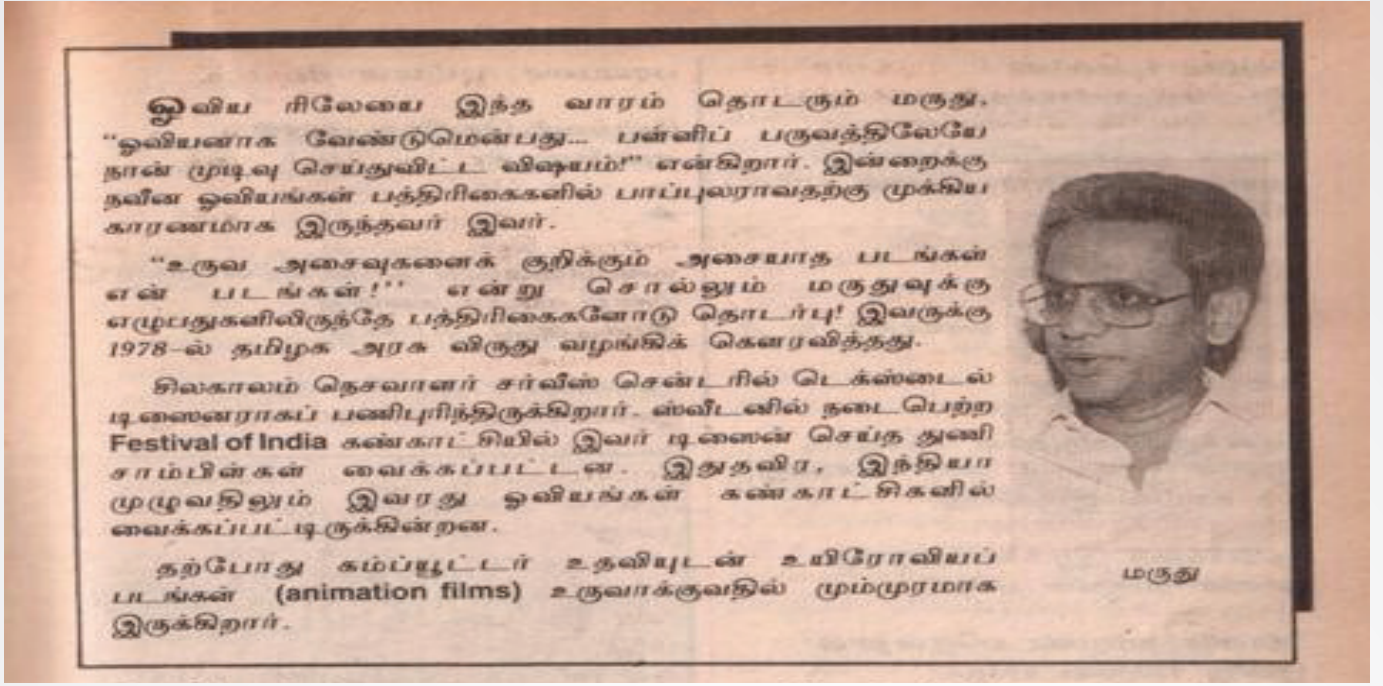 ஓவிய ரிலேயை இந்த வாரம் தொடரும் மருது,
“ஓவியனாக வேண்டுமென்பது... பள்ளிப் பருவத்திலேயே
நான் முடிவு செய்துவிட்ட விஷயம்!” என்கிறார். இன்றைக்கு
நவீன ஓவியங்கள் பத்திரிகைகளில் பாப்புலராவதற்கு முக்கிய
காரணமாக இருந்தவர் இவர்.
“உருவ அசைவுகளைக் குறிக்கும் அசையாத படங்கள்
என் படங்கள்!’’ என்று சொல்லும் மருதுவுக்கு
எழுபதுகளிலிருந்தே பத்திரிகைகளோடு தொடர்பு! இவருக்கு
1978–ல் தமிழக அரசு விருது வழங்கிக் கௌரவித்தது.
சிலகாலம் நெசவாளர் சர்வீஸ் சென்டரில் டெக்ஸ்டைல்
டிஸைனராகப் பணிபுரிந்திருக்கிறார். ஸ்வீடனில் நடைபெற்ற
Festival of India கண்காட்சியில் இவர் டிஸைன் செய்த துணி
சாம்பிள்கள் வைக்கப்பட்டன. இதுதவிர, இந்தியா
முழுவதிலும் இவரது ஓவியங்கள் கண்காட்சிகளில்
வைக்கப்பட்டிருக்கின்றன.
தற்போது கம்ப்யூட்டர் உதவியுடன் உயிரோவியப்
படங்கள் (animation films) உருவாக்குவதில் மும்முரமாக
இருக்கிறார்.
மருது